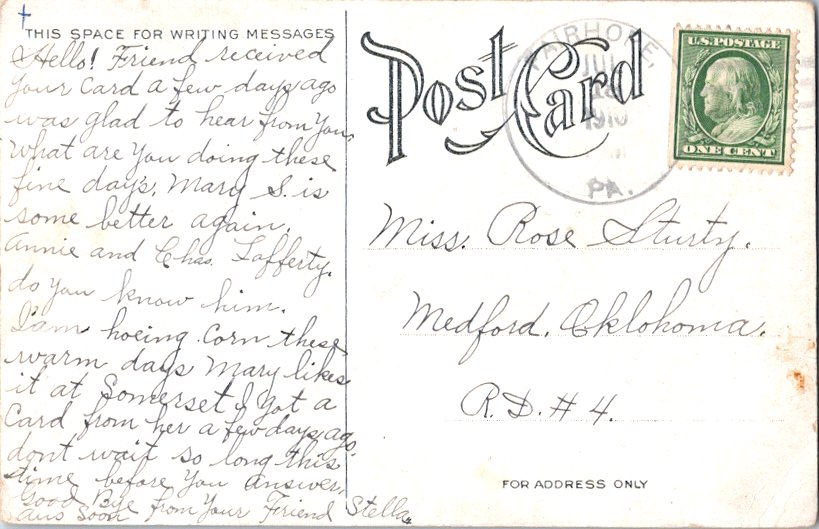 THIS SPACE FOR WRITING MESSAGES
Hello! Friend received
your Card a few days ago
was glad to hear from you,
What are you doing these
fine day's. Mary S. is
some better again.
Annie and Chas. Lafferty.
do you know him.
I'am hoeing Corn these
warm days Mary likes
it at Somerset I got a
Card from her a few days ago.
dont wait so long this
time before you answer.
Good Bye from Your Friend Stella.
ans Soon
Post Card
FAIRHOPE,
JUL
1910
PA.
U.S. POSTAGE
ONE CENT
Miss. Rose Sturty.
Medford. Oklohoma.
R.D. # 4.
FOR ADDRESS ONLY